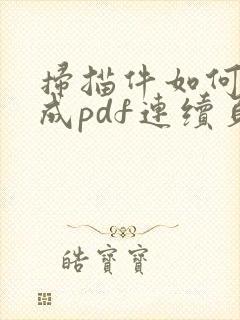 掃描件如何
成pdf連續
皓寶寶